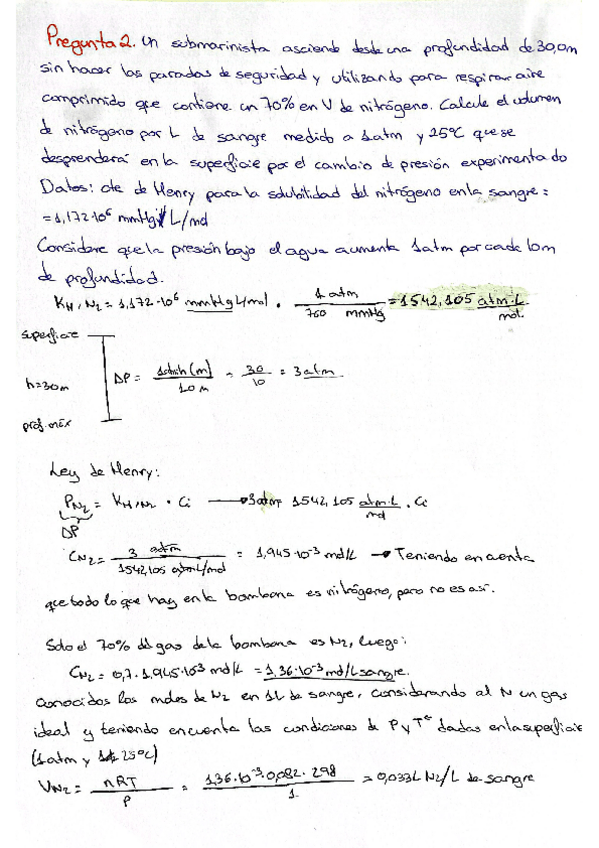 Pregunta 2. Un submarinista asciende desde una profundidad de 30,0m
sin hacer las paradas de seguridad y utilizando para respirar aire
comprimido que contiene un 70% en V de nitrógeno. Calcule el volumen
de nitrógeno por L de sangre medido a 1atm y 25ºC que se
desprenderá en la superficie por el cambio de presión experimentado
Datos: cte de Henry para la solubilidad del nitrógeno en la sangre =
= 1,172·10⁶ mmHg L/mol
Considere que la presión bajo el agua aumenta 1atm por cada 10m
de profundidad.
KH,N2 = 1,172·10⁶ mmHg L/mol · 1 atm / 760 mmHg = 1542,105 atm·L / mol.
superficie
h=30m
prof. máx
DP = 1atm·h(m) / 10 m = 30 / 10 = 3 atm
Ley de Henry:
PN2 = KH,N2 · Ci → 3 atm = 1542,105 atm·L / mol · Ci
DP
CN2 = 3 atm / 1542,105 atm·L/mol = 1,945·10⁻³ mol/L → Teniendo en cuenta
que todo lo que hay en la bombona es nitrógeno, pero no es así.
Solo el 70% del gas de la bombona es N2, luego:
CN2 = 0,7 · 1,945·10⁻³ mol/L = 1,36·10⁻³ mol/L sangre.
Conocidos los moles de N2 en 1L de sangre, considerando al N un gas
ideal y teniendo en cuenta las condiciones de P y Tª dadas en la superficie
(1 atm y 25ºC)
VN2 = nRT / P = 1,36·10⁻³·0,082·298 / 1 = 0,033L N2/L de sangre